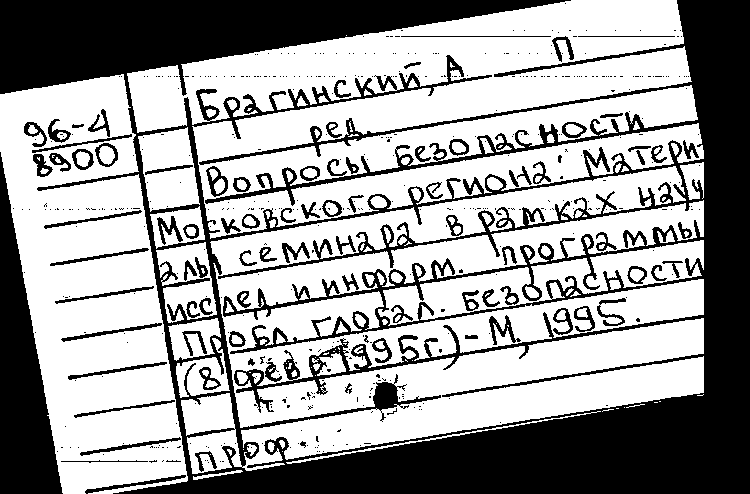 96-4
8900
Брагинский, А П
ред.
Вопросы безопасности
Московского региона: Матери-
алы семинара в рамках науч
исслед. и информ. программы
Пробл. глобал. безопасности
(8 февр 1995г.) - М, 1995.
проф.